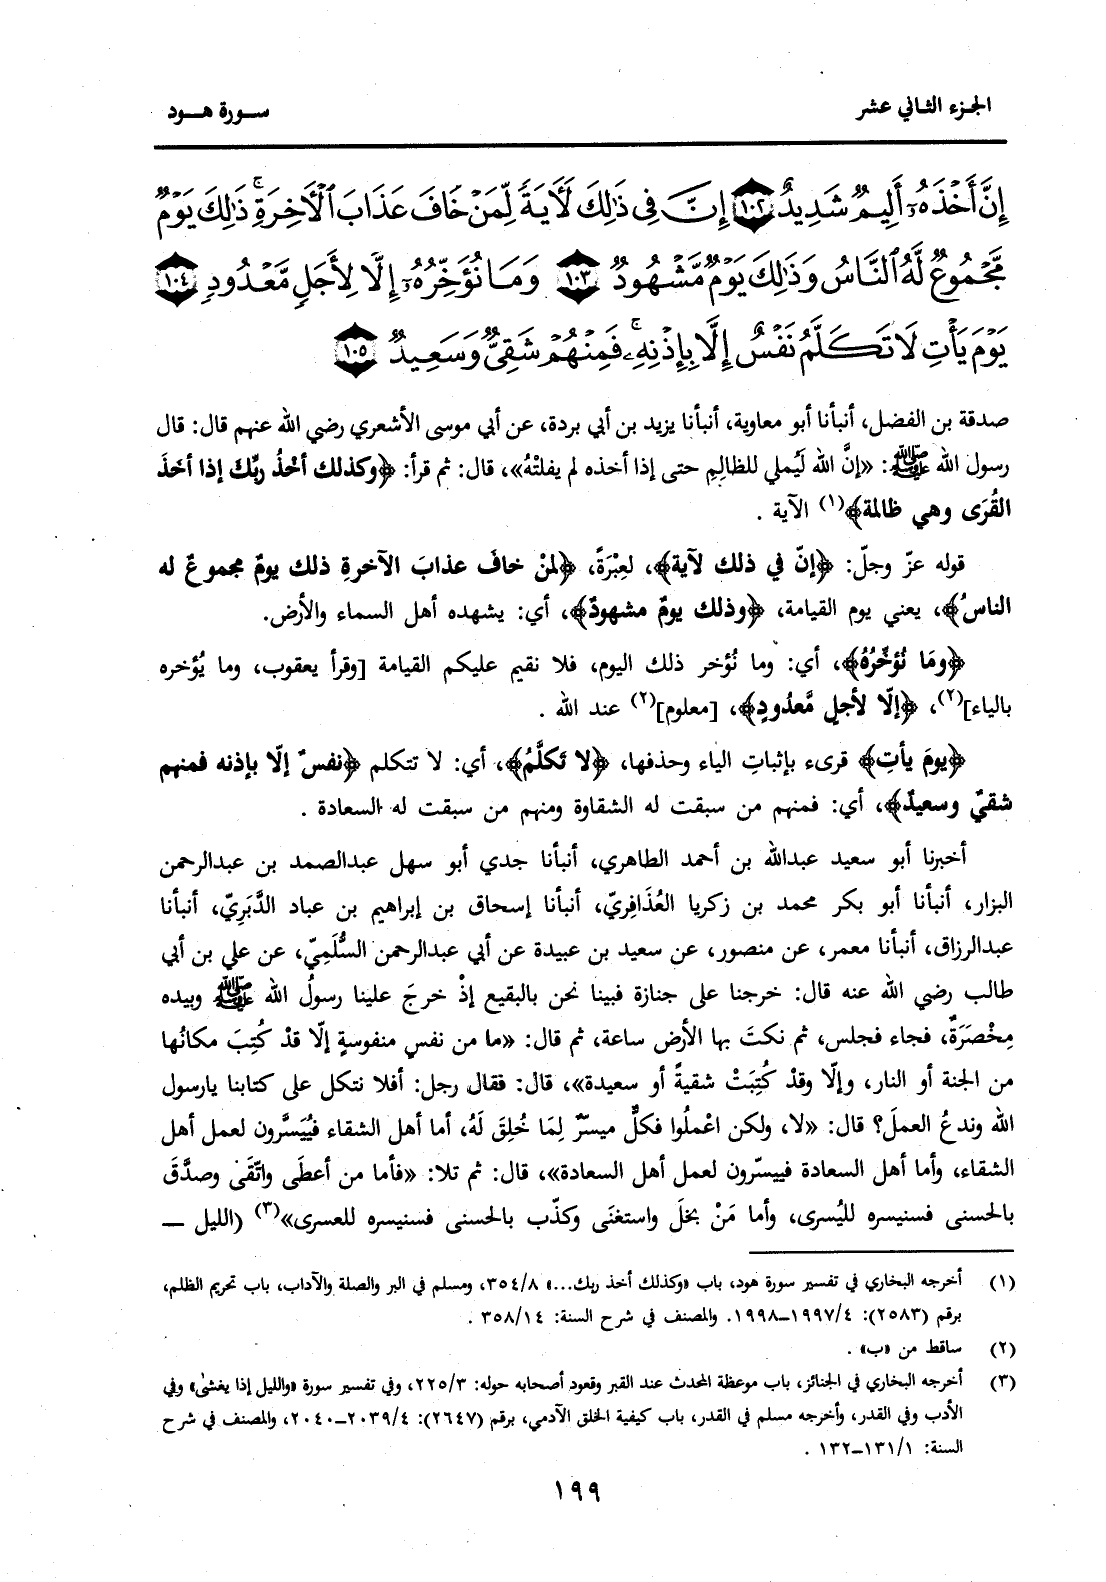 الجزء الثاني عشر
سورة هود
إِنَّ أَخْذَهُۥٓ أَلِيمٌ شَدِيدٌ ١٠٢ إِنَّ فِى ذَٰلِكَ لَأٓيَةً لِّمَنْ خَافَ عَذَابَ ٱلْأَخِرَةِ ۚ ذَٰلِكَ يَوْمٌ
مَّجْمُوعٌ لَّهُ ٱلنَّاسُ وَذَٰلِكَ يَوْمٌ مَّشْهُودٌ ١٠٣ وَمَا نُؤَخِّرُهُۥٓ إِلَّا لِأَجَلٍ مَّعْدُودٍ ١٠٤
يَوْمَ يَأْتِ لَا تَكَلَّمُ نَفْسٌ إِلَّا بِإِذْنِهِۦ ۚ فَمِنْهُمْ شَقِىٌّ وَسَعِيدٌ ١٠٥
صدقة بن الفضل، أنبأنا أبو معاوية، أنبأنا يزيد بن أبي بردة، عن أبي موسى الأشعري رضي الله عنهم قال: قال
رسول الله ﷺ: «إنَّ الله لَيُملي للظالِمِ حتى إذا أخذه لم يفلتْهُ»، قال: ثم قرأ: ﴿وكذلك أخْذُ ربِّكَ إذا أخَذَ
القُرَى وهي ظالمة﴾(١) الآية .
قوله عزّ وجلّ: ﴿إنّ في ذلك لآية﴾، لعِبْرَةً، ﴿لمنْ خافَ عذابَ الآخرةِ ذلك يومٌ مجموعٌ له
الناسُ﴾، يعني يوم القيامة، ﴿وذلك يومٌ مشهودٌ﴾، أي: يشهده أهل السماء والأرض.
﴿ومَا نُؤخِّرُهُ﴾، أي: وما نُؤخر ذلك اليوم، فلا نقيم عليكم القيامة [وقرأ يعقوب، وما يُؤخره
بالياء](٢)، ﴿إلّا لأجلٍ مَّعدُودٍ﴾، [معلوم](٢) عند الله .
﴿يومَ يأتِ﴾ قرىء بإثباتِ الياء وحذفها، ﴿لا تَكلَّمُ﴾، أي: لا تتكلم ﴿نفسٌ إلّا بإذنه فمنهم
شقيٌّ وسعيدٌ﴾، أي: فمنهم من سبقت له الشقاوة ومنهم من سبقت له السعادة .
أخبرنا أبو سعيد عبدالله بن أحمد الطاهري، أنبأنا جدي أبو سهل عبدالصمد بن عبدالرحمن
البزار، أنبأنا أبو بكر محمد بن زكريا العُذَافِريّ، أنبأنا إسحاق بن إبراهيم بن عباد الدَّبَرِيّ، أنبأنا
عبدالرزاق، أنبأنا معمر، عن منصور، عن سعيد بن عبيدة عن أبي عبدالرحمن السُّلَمِيّ، عن علي بن أبي
طالب رضي الله عنه قال: خرجنا على جنازة فبينا نحن بالبقيع إذْ خرجَ علينا رسولُ الله ﷺ وبيده
مِخْصَرَةٌ، فجاء فجلس، ثم نكتَ بها الأرض ساعة، ثم قال: «ما من نفسٍ منفوسةٍ إلّا قدْ كُتِبَ مكانُها
من الجنة أو النار، وإلّا وقدْ كُتِبَتْ شقيةً أو سعيدة»، قال: فقال رجل: أفلا نتكل على كتابنا يارسول
الله وندعُ العملَ؟ قال: «لا، ولكن اعْملُوا فكلٌّ ميسرٌ لِمَا خُلِقَ لَهُ، أما أهل الشقاء فيُيَسَّرون لعمل أهل
الشقاء، وأما أهل السعادة فييسّرون لعمل أهل السعادة»، قال: ثم تلا: «فأما من أعطَى واتّقَى وصدَّقَ
بالحسنى فسنيسره لليُسرى، وأما مَنْ بخلَ واستغنَى وكذّب بالحسنى فسنيسره للعسرى»(٣) (الليل —
(١) أخرجه البخاري في تفسير سورة هود، باب «وكذلك أخذ ربك...» ٣٥٤/٨، ومسلم في البر والصلة والآداب، باب تحريم الظلم،
برقم (٢٥٨٣): ١٩٩٧/٤–١٩٩٨. والمصنف في شرح السنة: ٣٥٨/١٤ .
(٢) ساقط من «ب» .
(٣) أخرجه البخاري في الجنائز، باب موعظة المحدث عند القبر وقعود أصحابه حوله: ٢٢٥/٣، وفي تفسير سورة «والليل إذا يغشى» وفي
الأدب وفي القدر، وأخرجه مسلم في القدر، باب كيفية الخلق الآدمي، برقم (٢٦٤٧): ٢٠٣٩/٤–٢٠٤٠، والمصنف في شرح
السنة: ١٣١/١–١٣٢ .
١٩٩